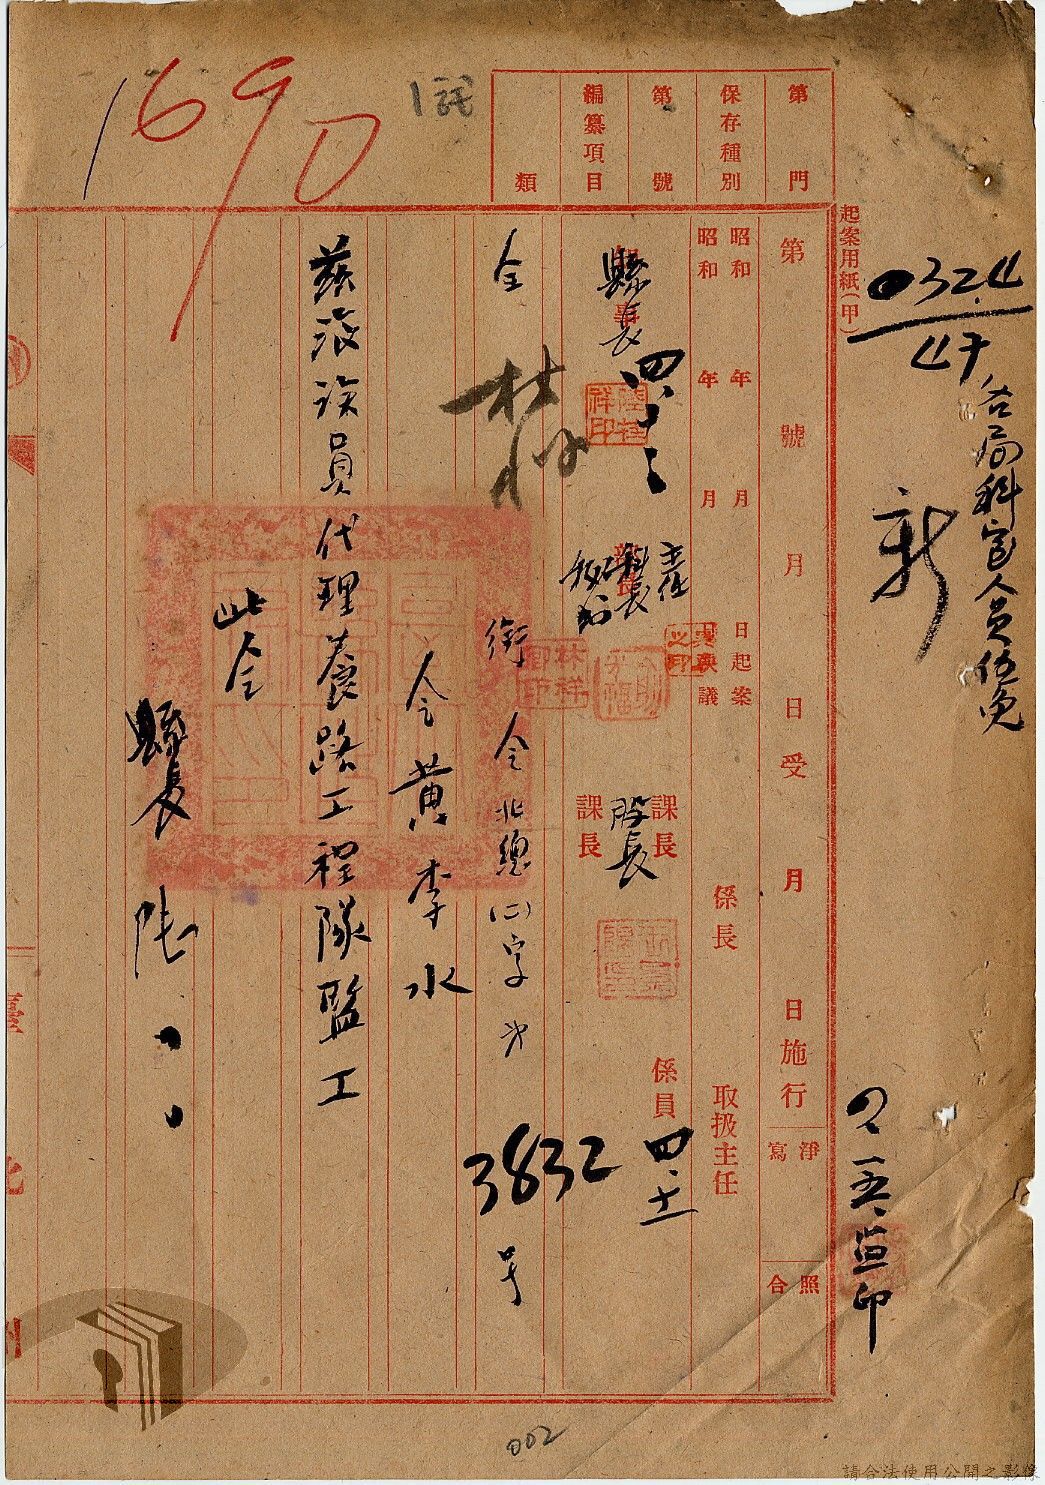 169D
0324
47
各局科室人員任免
起案用紙(甲)
第 門
保存種別
第 號
編纂項目
類
第 號 月 日受 月 日施行
淨寫
照合
昭和 年 月 日起案
昭和 年 月 議
係長
取扱主任
縣長
四、十三
主任
科長
秘書
課長
股長
課長
係員
四、十二
全銜令北總(二)字第3832號
令黃李水
茲派該員代理養路工程隊監工
此令
縣長陸、、
四、一五、監印
002
請合法使用公開之影像